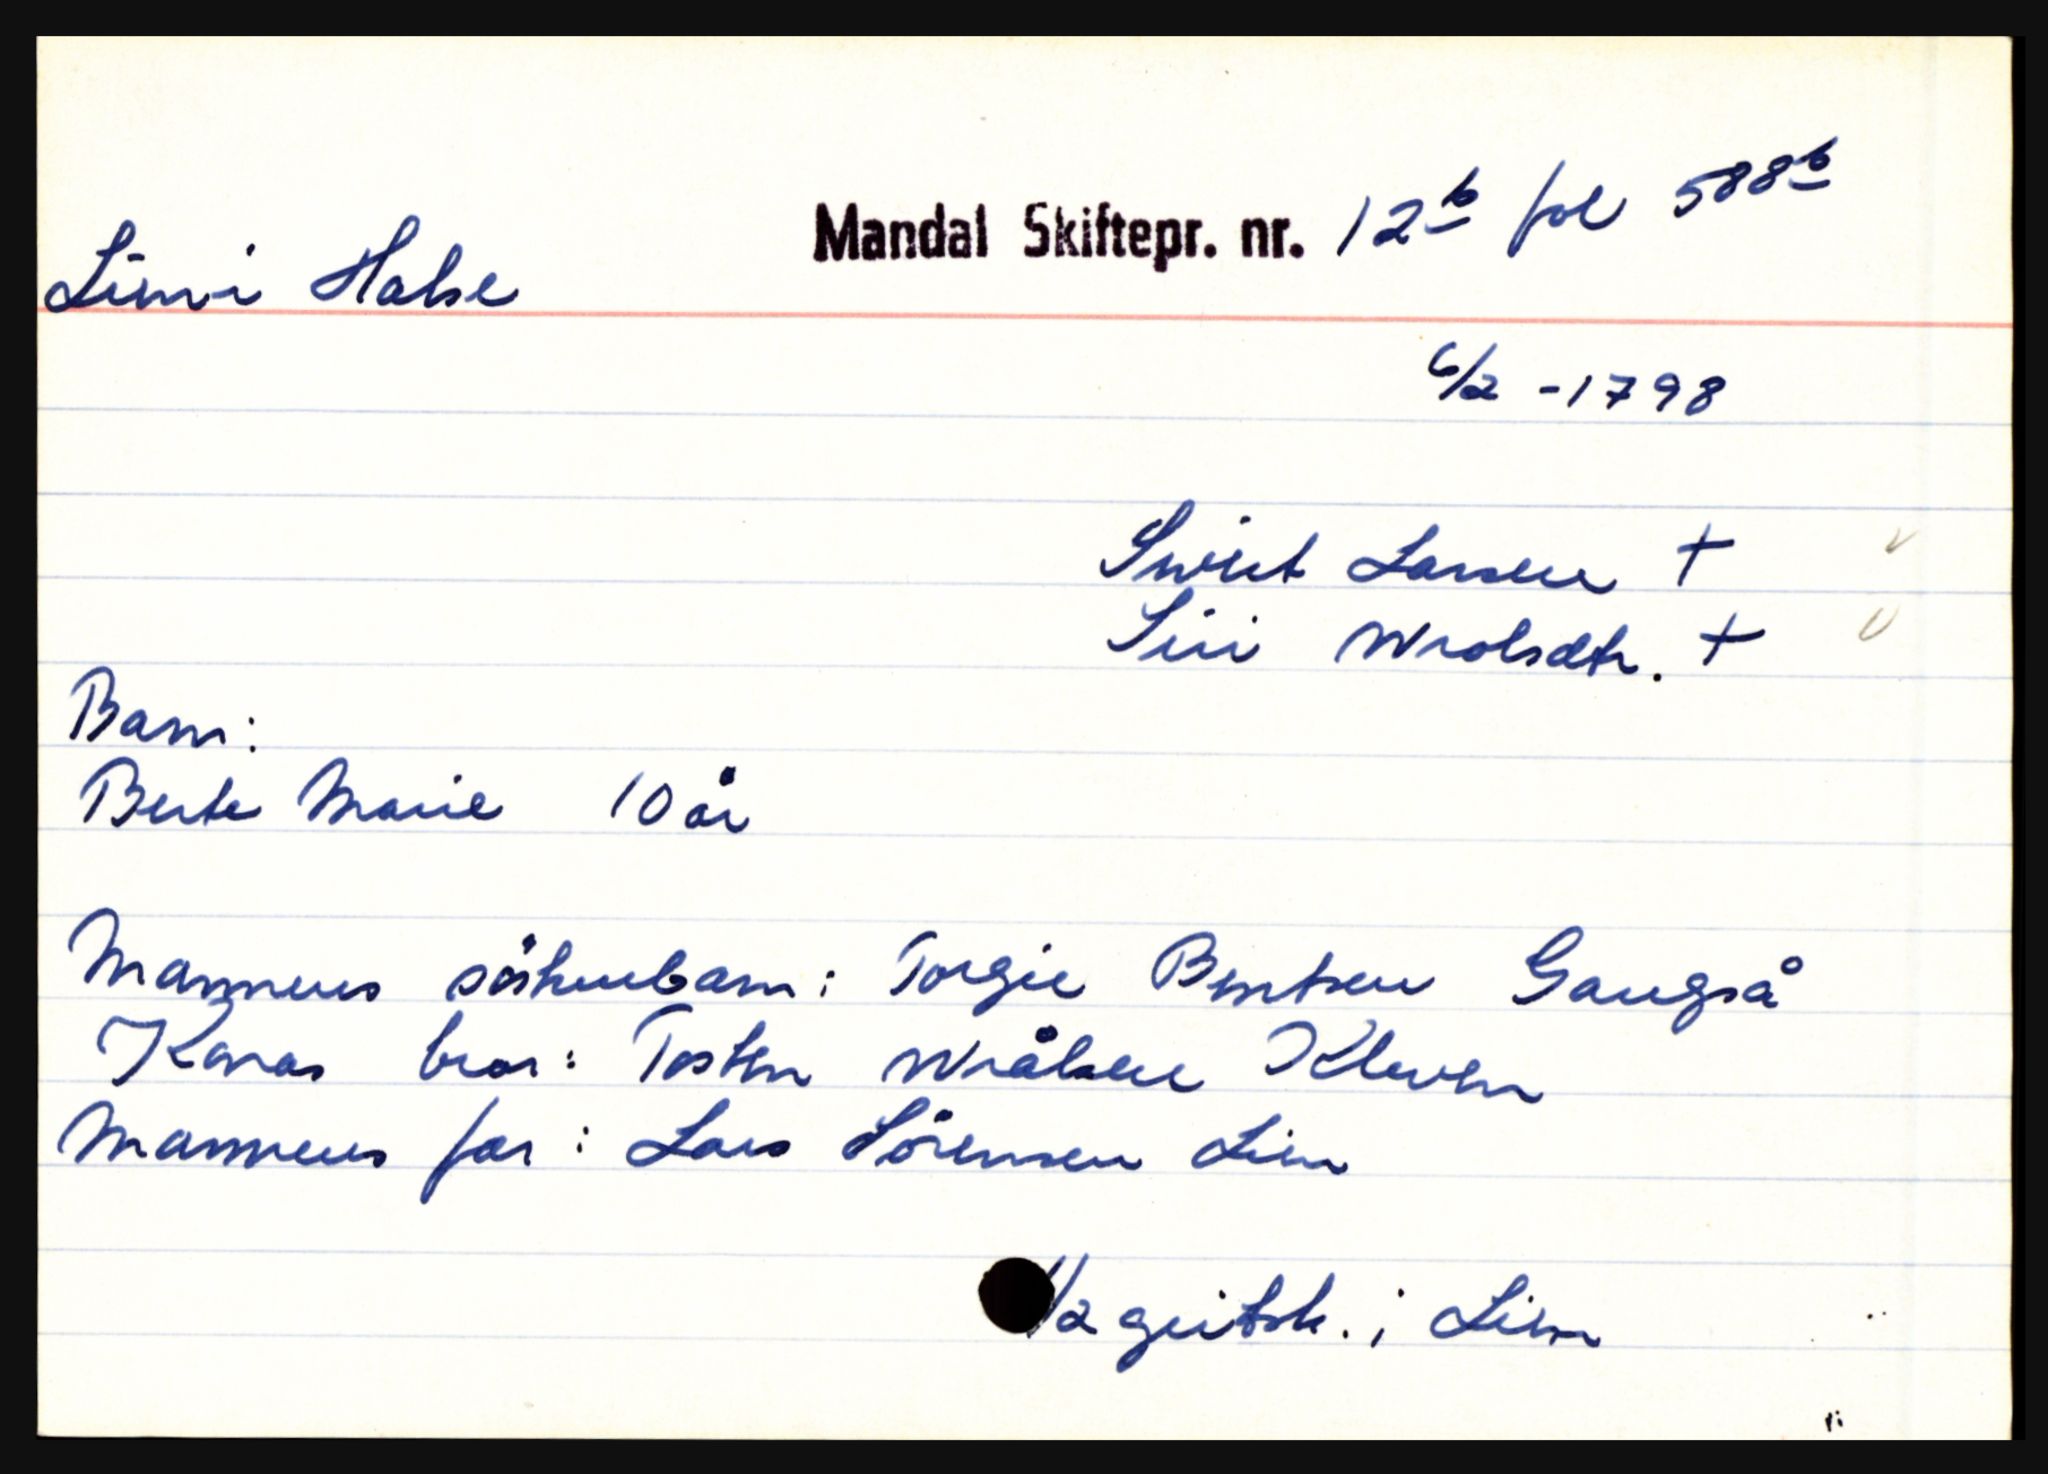 Mandal Skiftepr. nr. 12b fol 588b
Lien i Halse
6/2 -1798
Sivert Larsen +
Siri Wrolsdtr. +
Barn:
Berte Marie 10 år
Mannens söskenbarn: Torgie Bentsen Gangså
Konas bror: Tosten Wrålsen Kleven
Mannens far: Lars Sörensen Lien
1/2 geitsk. i Lien